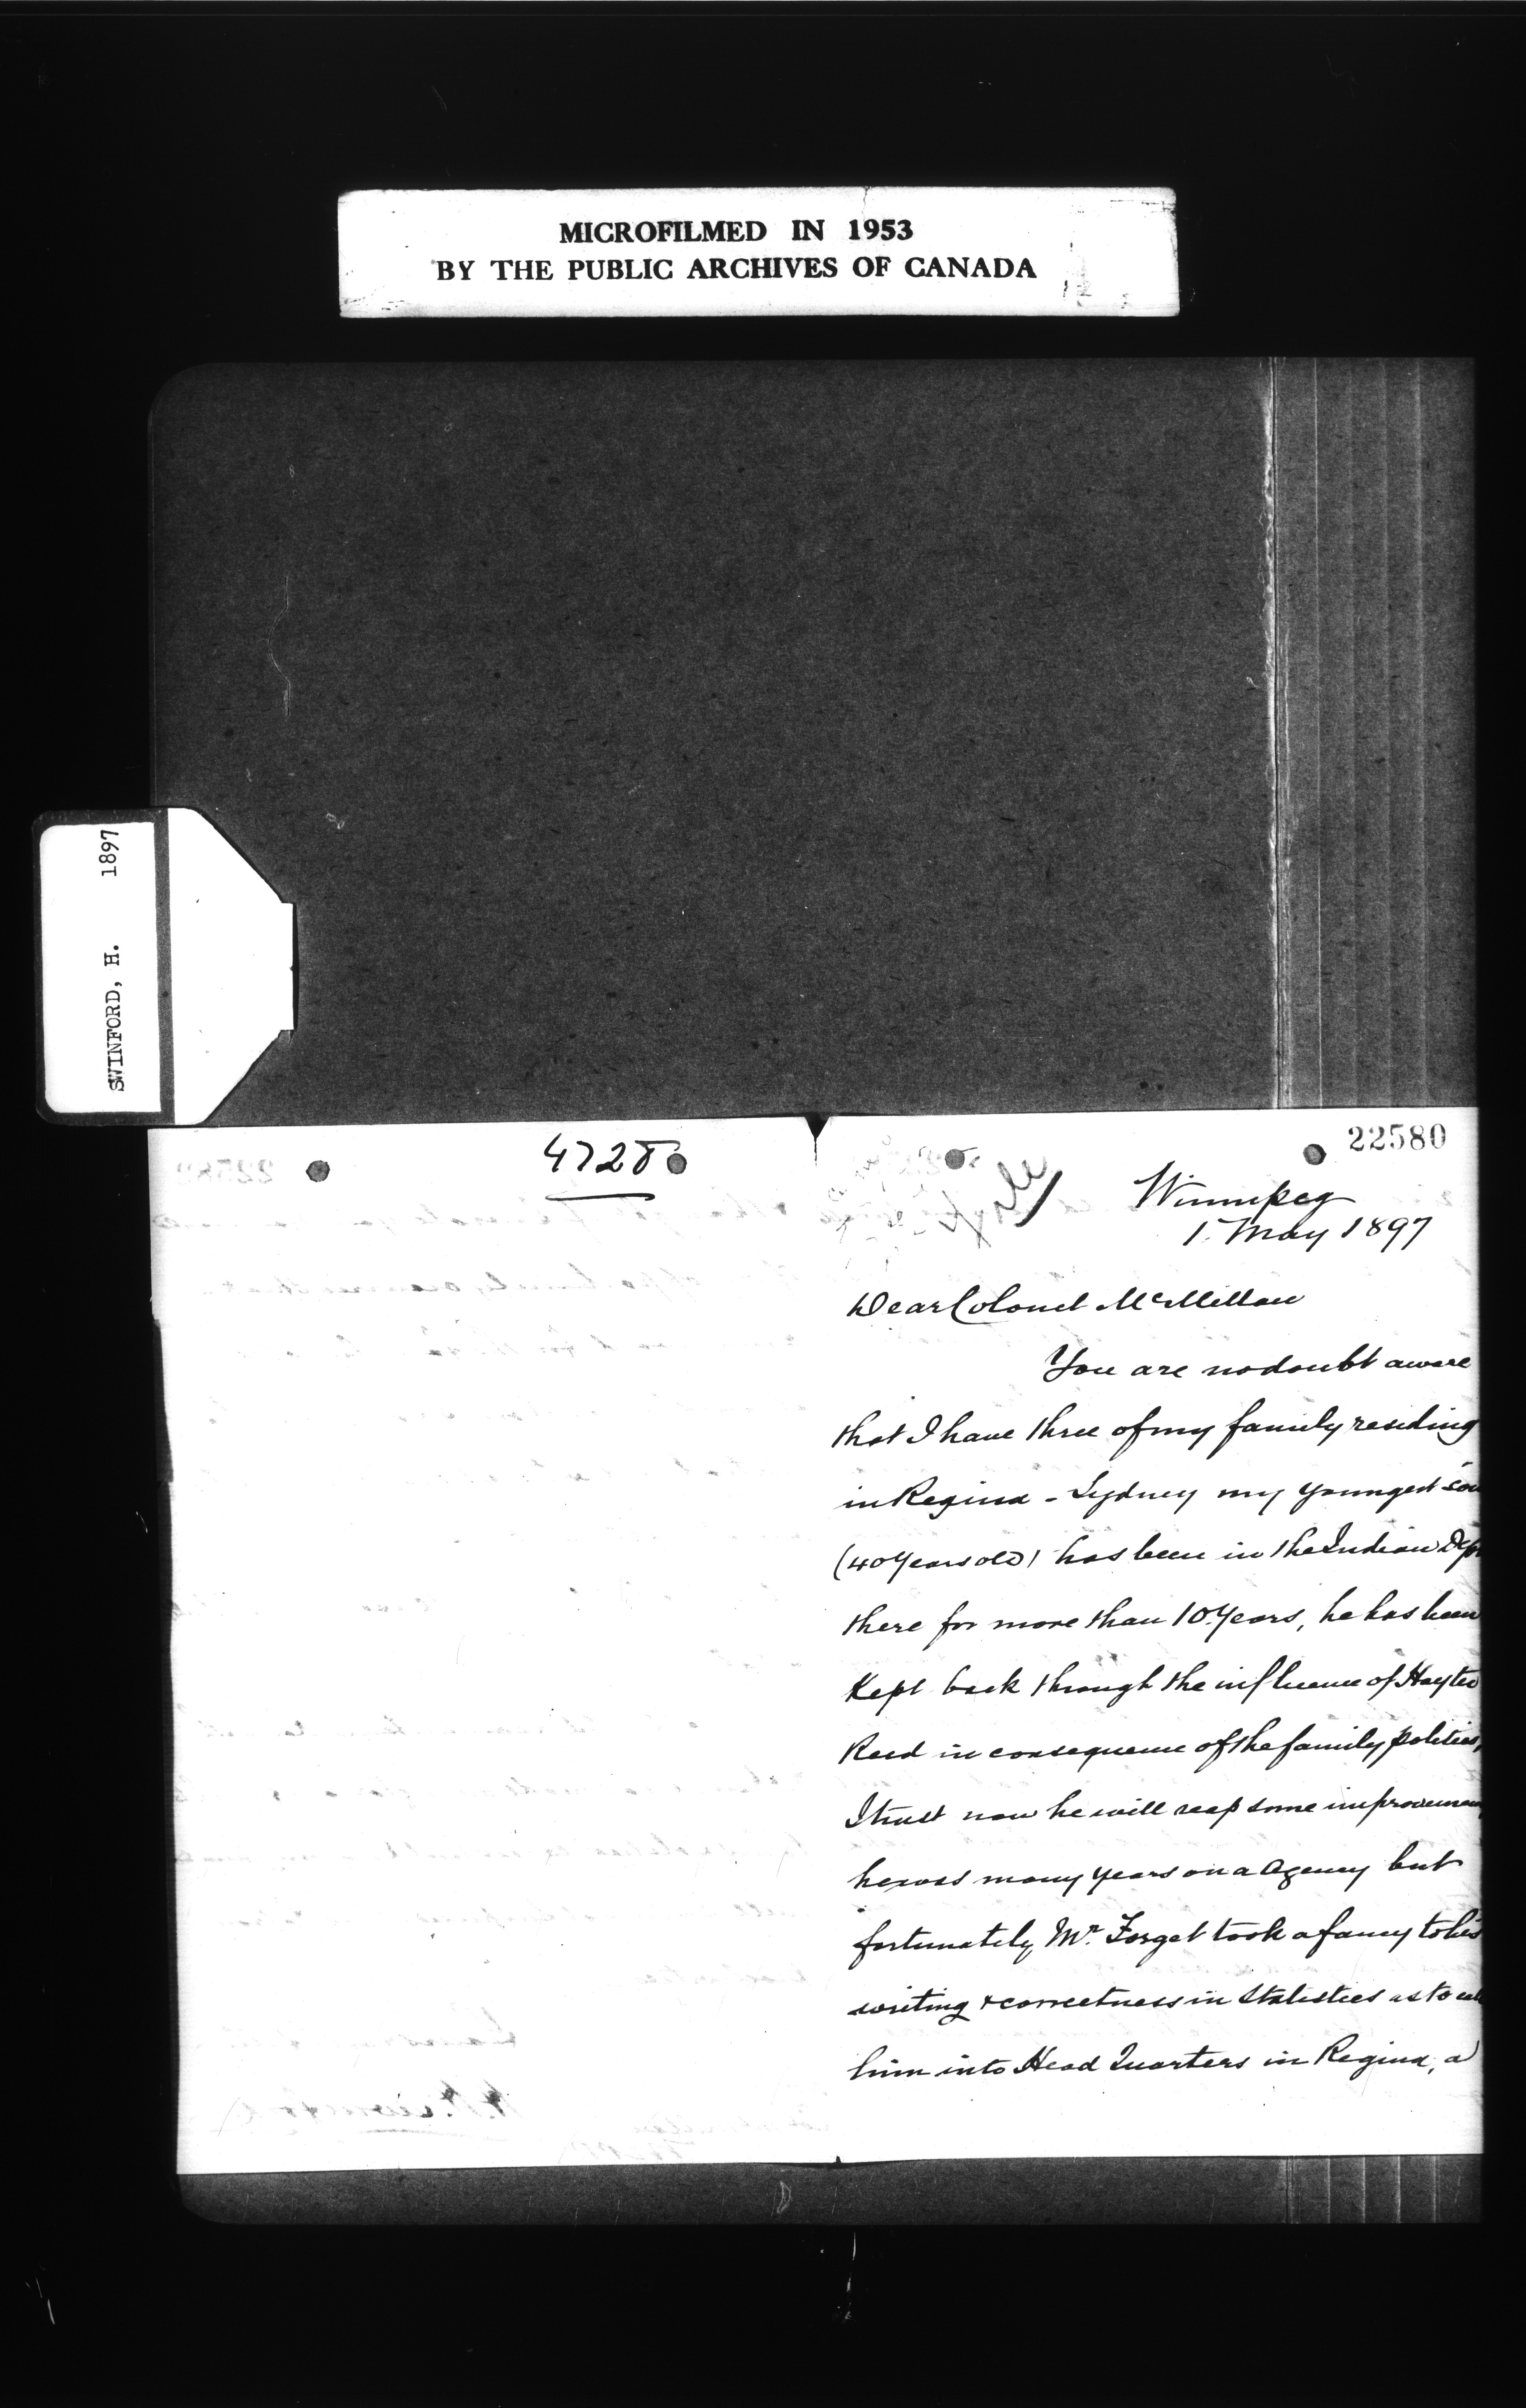 MICROFILMED IN 1953
BY THE PUBLIC ARCHIVES OF CANADA
SWINFORD, H. 1897
4728
22580
Winnipeg
1. May 1897
Dear Colonel McMillan
You are no doubt aware
that I have three of my family residing
in Regina - Sydney my youngest son
(40 years old) has been in the Indian Dept
there for more than 10 years, he has been
Kept back through the influence of Hayter
Reed in consequence of the family politics,
I trust now he will reap some improvement
he was many years on a Agency but
fortunately Mr. Forget took a fancy to his
writing & correctness in Statistics as to call
him into Head Quarters in Regina, a